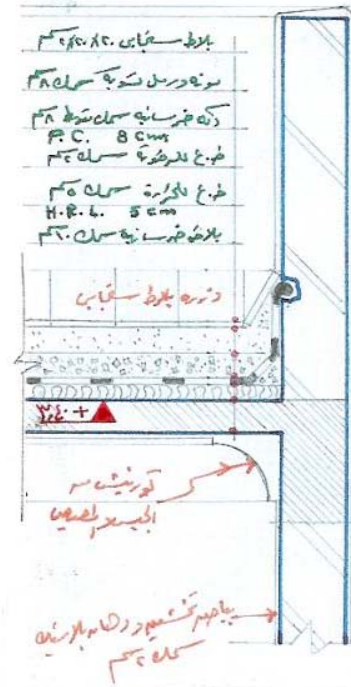 بلاط سنجابى ٢٠×٢٠×٢سم
مونه ورمل تسويه سمك ٨سم
دكه خرسانه سمك متوسط ٨سم
P.C. 8 cm
ط.ع للرطوبة سمك ٢سم
ط.ع للحرارة سمك ٥سم
H.R.L. 5 cm
بلاطه خرسانية سمك ١٠سم
وزره بلاط سنجابى
+ ٣,٤٠
كورنيش من
الجبس المصيص
بياض تخشين ودهان بلاستيك
سمك ٢سم